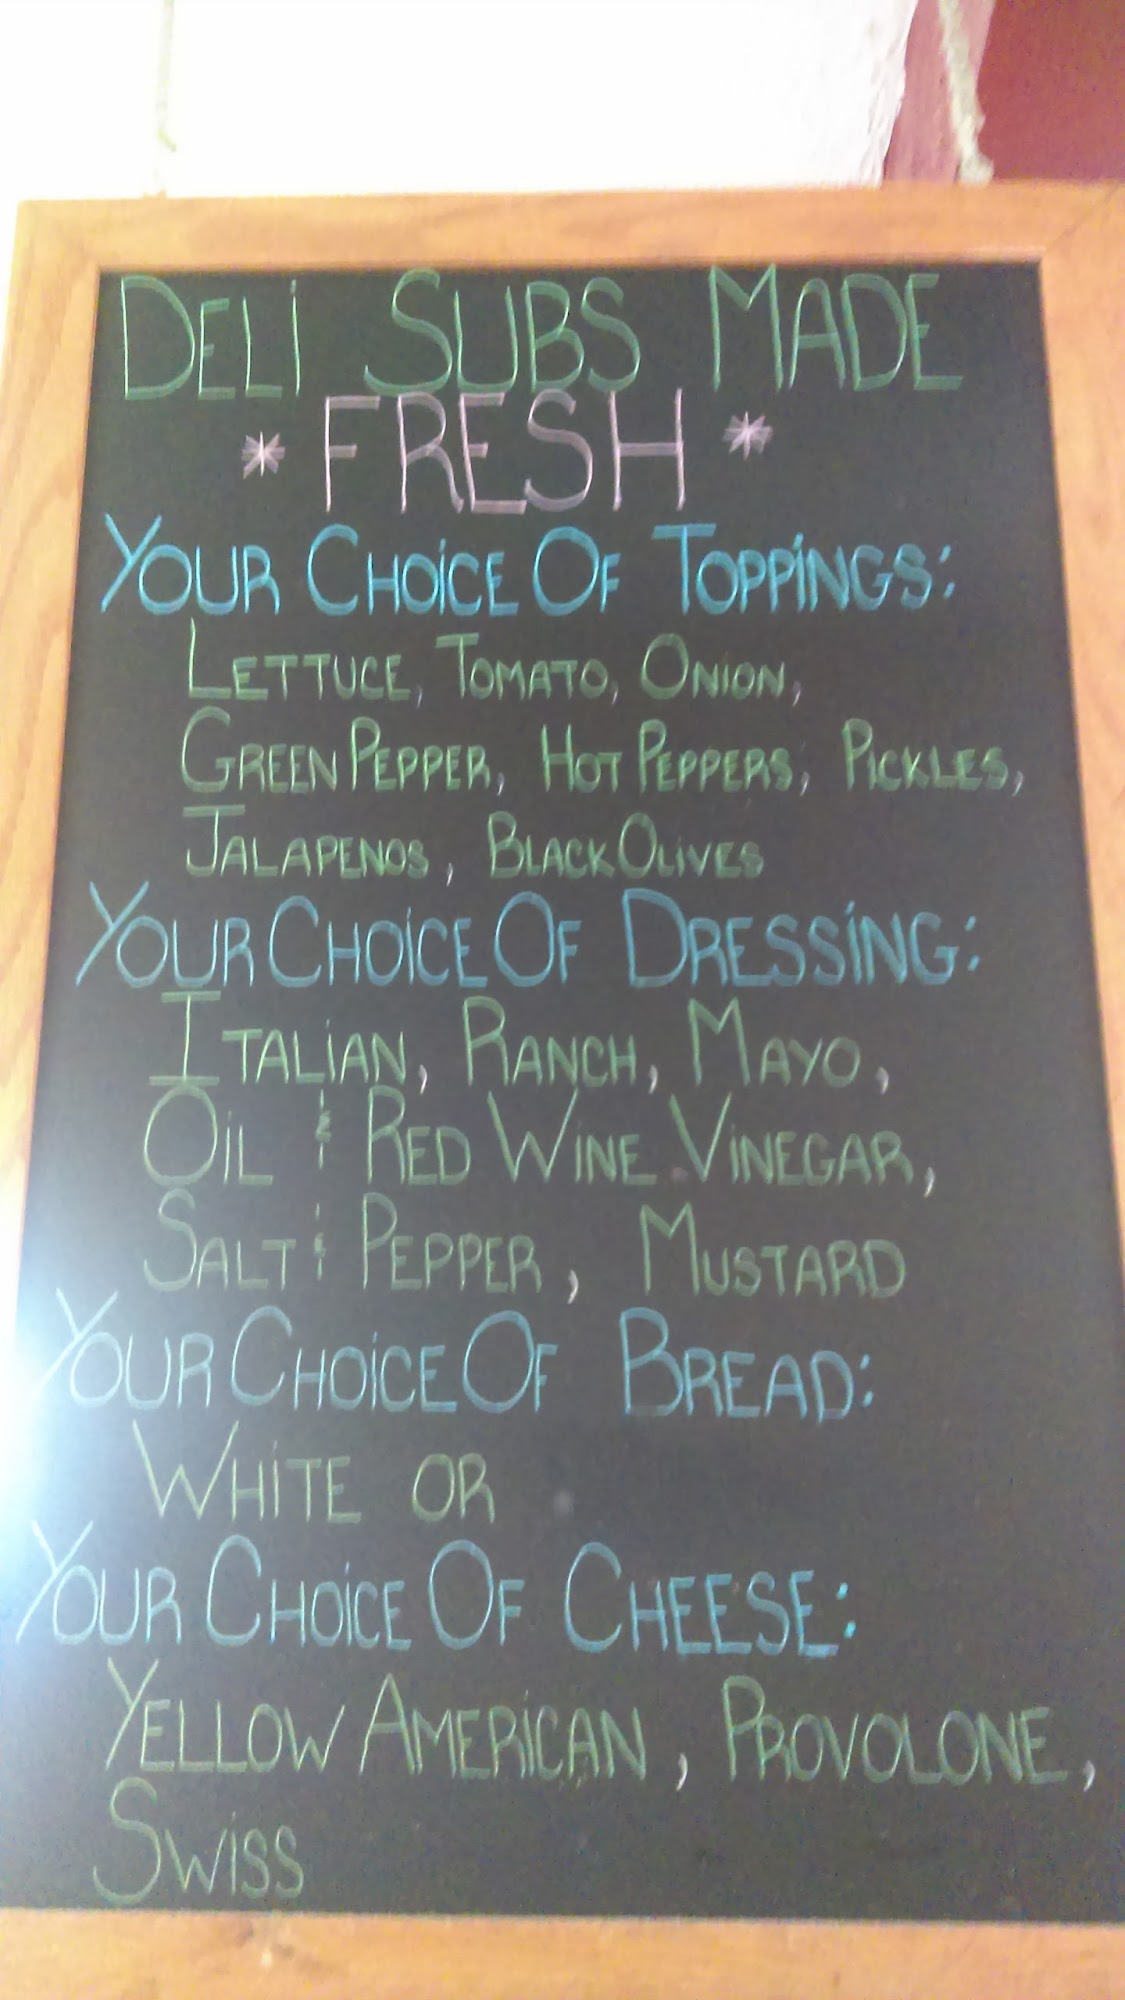 Deli Subs Made
* Fresh *
Your Choice Of Toppings:
Lettuce, Tomato, Onion,
Green Pepper, Hot Peppers, Pickles,
Jalapenos, Black Olives
Your Choice Of Dressing:
Italian, Ranch, Mayo,
Oil & Red Wine Vinegar,
Salt & Pepper, Mustard
Your Choice Of Bread:
White or
Your Choice Of Cheese:
Yellow American, Provolone,
Swiss